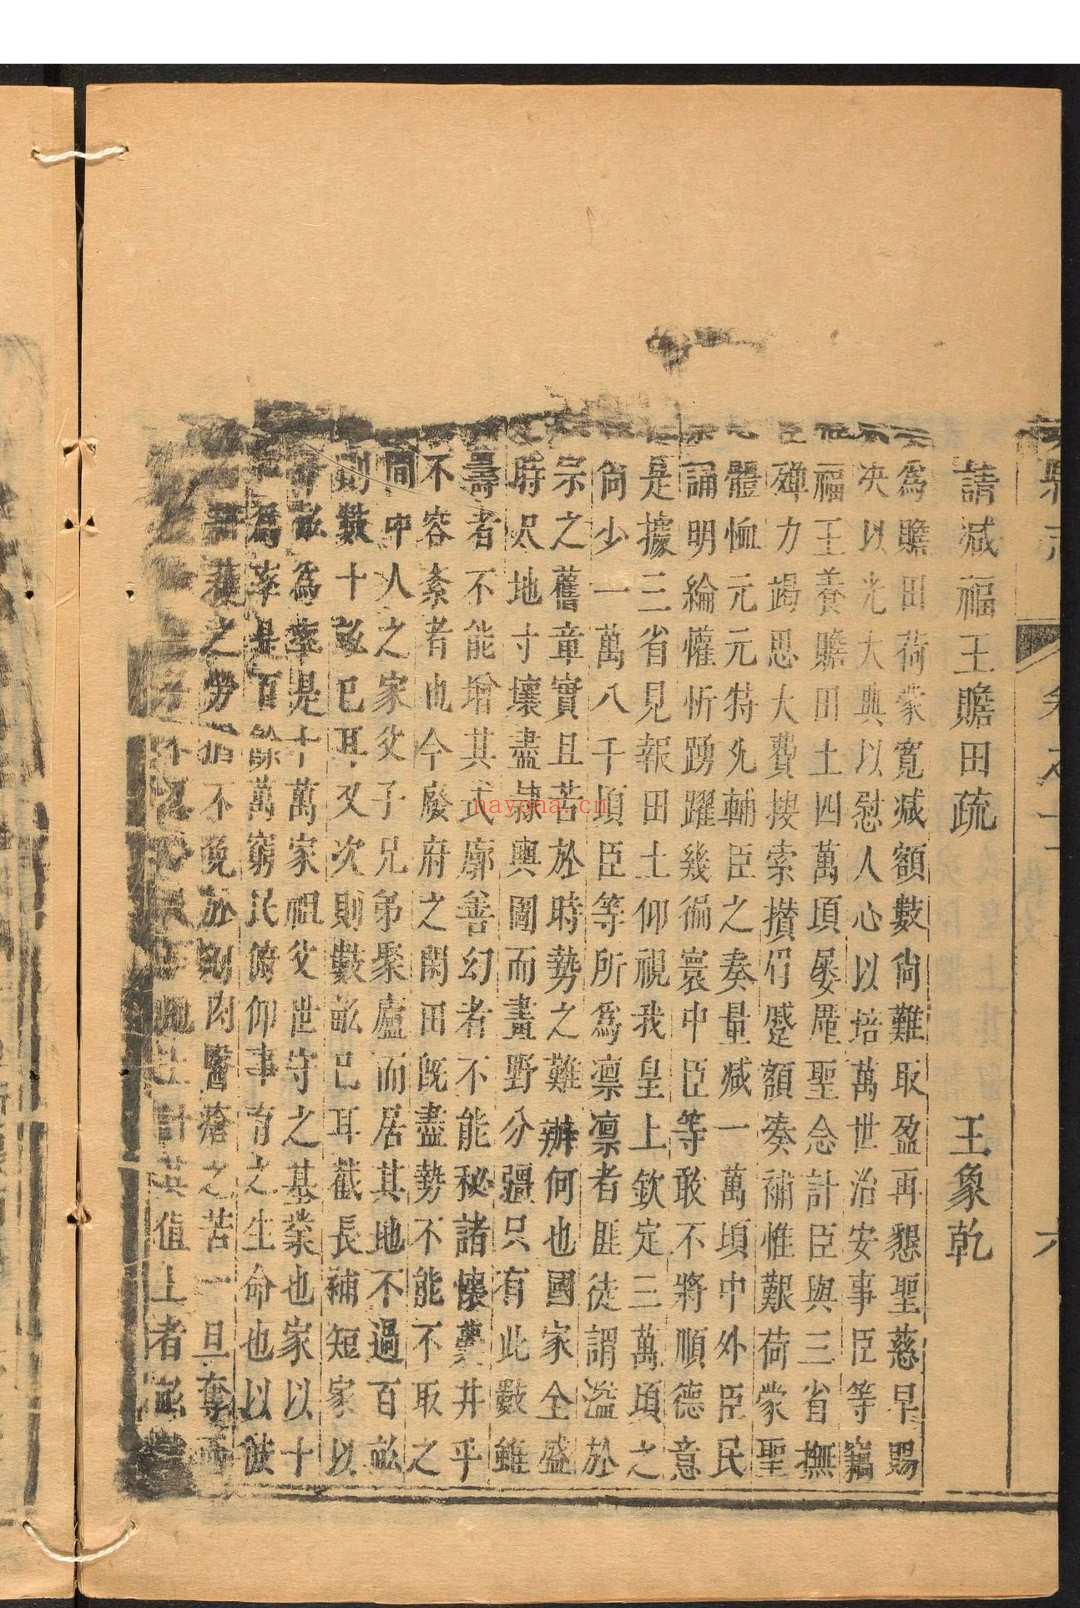 縣志 卷之十 六
請減福王贍田疏 王象乾
為贍田荷蒙寬減額數尙難取盈再懇聖慈早賜
決以光大典以慰人心以培萬世治安事臣等竊
福王養贍田土四萬頃屡厪聖念計臣與三省撫
殫力竭思大費搜索攅仴蹙額湊補惟艱荷蒙聖
體恤元元特允輔臣之奏量减一萬頃中外臣民
誦明綸懽忻踴躍幾徧寰中臣等敢不將順德意
是據三省見報田土仰視我皇上欽定三萬頃之
尙少一萬八千頃臣等所爲凛凛者匪徒謂濫於
宗之舊章實且苦於時勢之難辦何也國家全盛
時尺地寸壤盡隷輿圖而畫野分疆只有此數雖
壽者不能增其式廓善幻者不能秘諸懷橐井乎
不容紊者也今廢府之閑田既盡勢不能不取之
間中人之家父子兄弟聚廬而居其地不過百畝
則數十畝已耳又次則數畝已耳截長補短家以
畝為率是十萬家祖父世守之基業也家以十
爲率是百餘萬窮民俯仰事育之生命也以彼
之勞猶不免於剜肉醫瘡之苦一旦奪
計其值上者
navona.cn